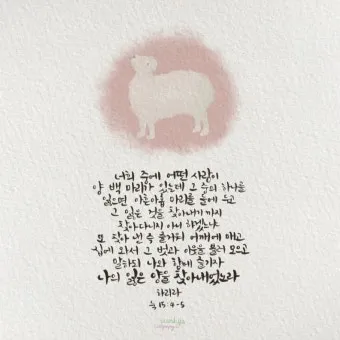 너희 중에 어떤 사람이
양 백 마리가 있는데 그 중의 하나를
잃으면 아흔아홉 마리를 들에 두고
그 잃은 것을 찾아내기까지
찾아다니지 아니하겠느냐
또 찾아낸즉 즐거워 어깨에 메고
집에 와서 그 벗과 이웃을 불러 모으고
말하되 나와 함께 즐기자
나의 잃은 양을 찾아내었노라
하리라
눅 15:4-6